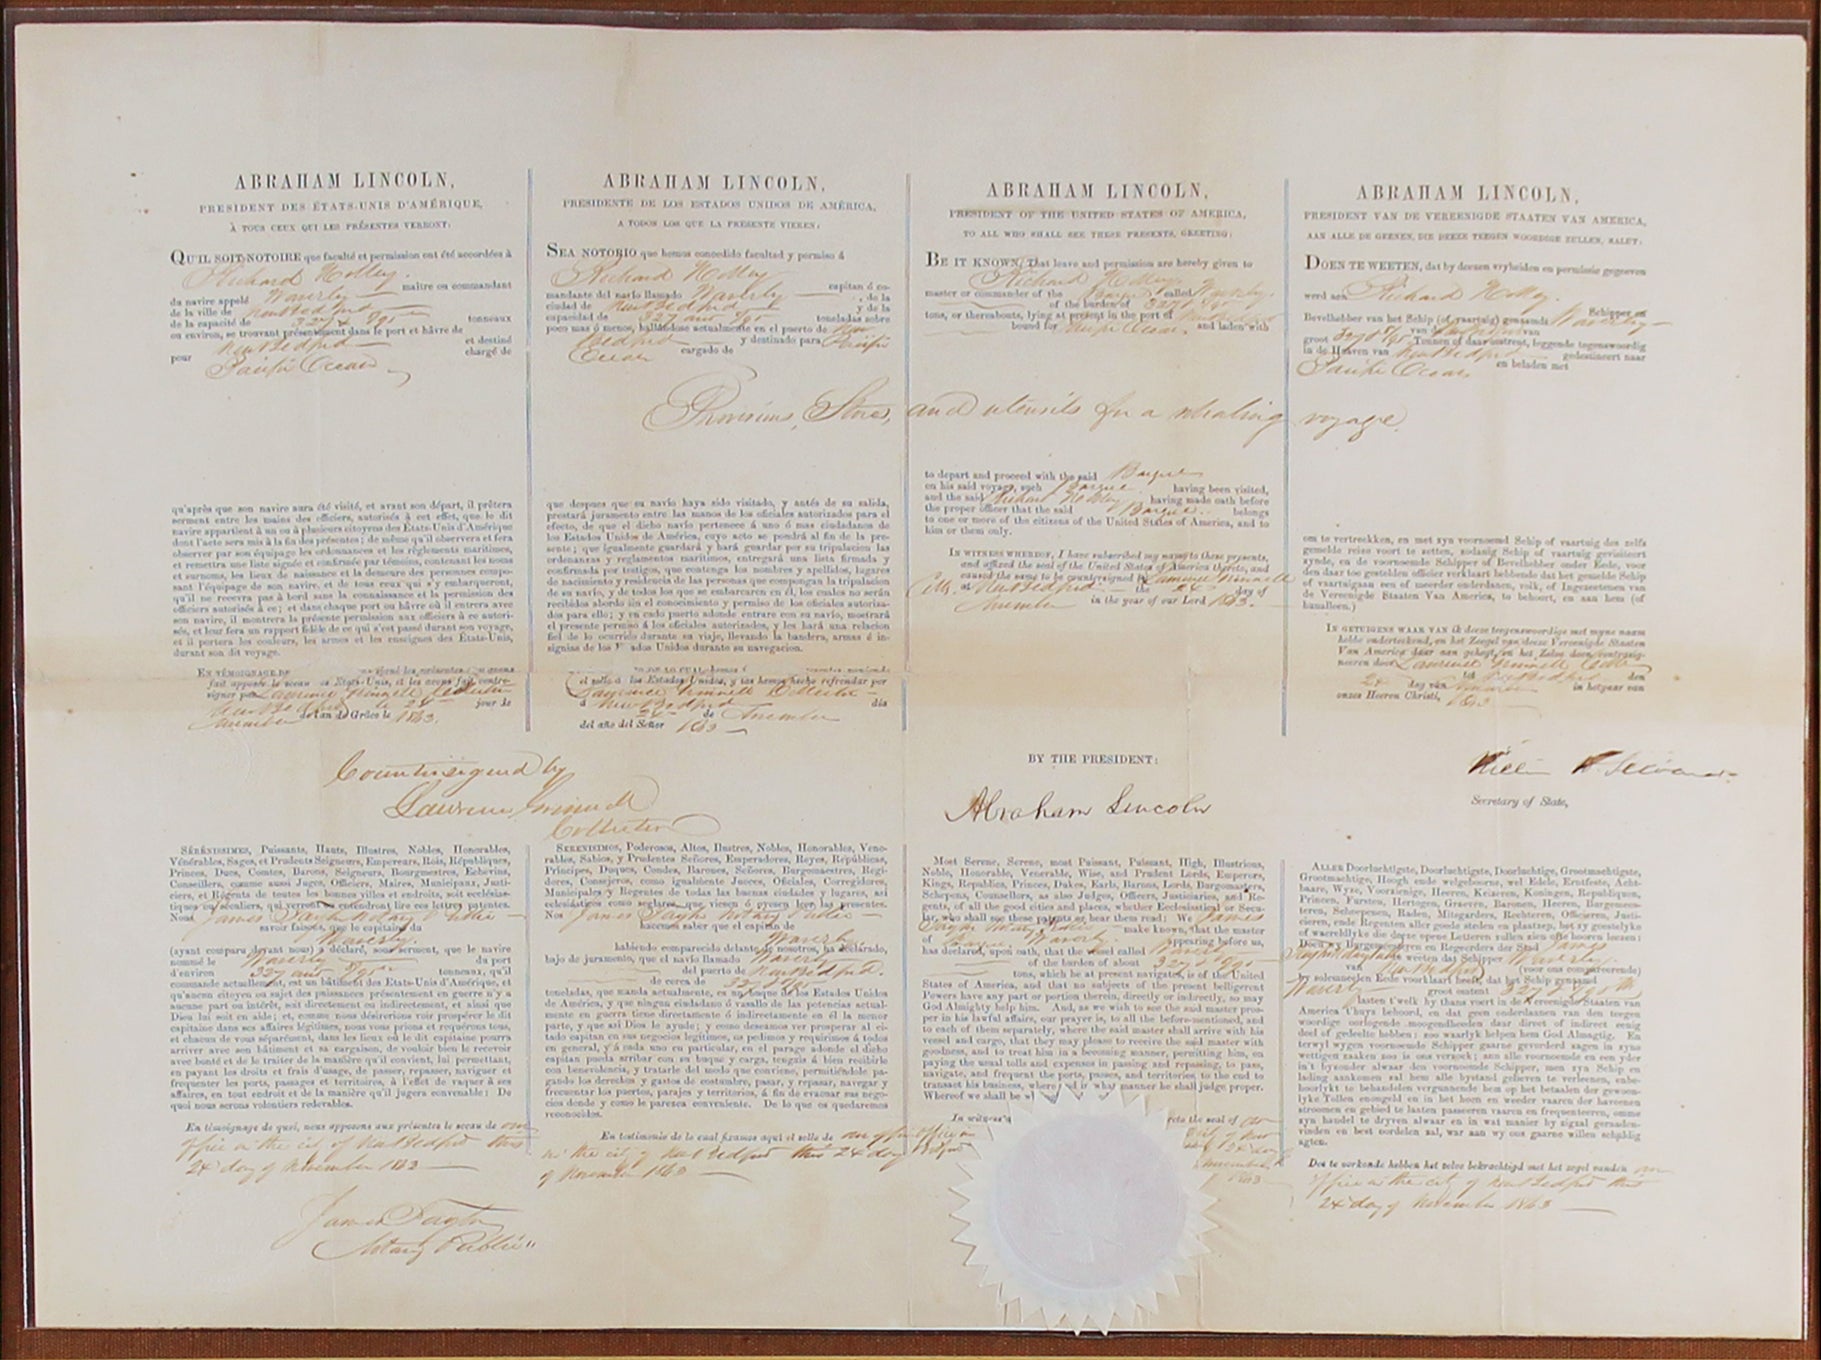 ABRAHAM LINCOLN,
PRESIDENT DES ÉTATS-UNIS D'AMÉRIQUE,
À TOUS CEUX QUI LES PRÉSENTES VERRONT:
QU'IL SOIT NOTOIRE que faculté et permission ont été accordées à
Richard Holley.
maître ou commandant
du navire appelé Waverly
de la ville de New Bedford
de la capacité de 327 & /95 tonneaux
ou environ, se trouvant présentement dans le port et hâvre de
New Bedford et destiné
pour chargé de
Pacific Ocean
ABRAHAM LINCOLN,
PRESIDENTE DE LOS ESTADOS UNIDOS DE AMÉRICA,
A TODOS LOS QUE LA PRESENTE VIEREN:
SEA NOTORIO que hemos concedido facultad y permiso á
Richard Holley
capitan ó co-
mandante del navío llamado Waverly , de la
ciudad de New Bedford y de la
capacidad de 327 and /95 toneladas sobre
poco mas ó menos, hallándose actualmente en el puerto de New
Bedford y destinado para Pacific
Ocean cargado de
ABRAHAM LINCOLN,
PRESIDENT OF THE UNITED STATES OF AMERICA,
TO ALL WHO SHALL SEE THESE PRESENTS, GREETING:
BE IT KNOWN, That leave and permission are hereby given to
Richard Holley
master or commander of the Barque called Waverly.
of the burden of 327 & /95
tons, or thereabouts, lying at present in the port of New Bedford
bound for Pacific Ocean. and laden with
ABRAHAM LINCOLN,
PRESIDENT VAN DE VEREENIGDE STAATEN VAN AMERICA,
AAN ALLE DE GEENEN, DIE DEEZE TEEGEN WOORDIGE ZULLEN, SALUT:
DOEN TE WEETEN, dat by deezen vryheiden en permissie gegeeven
werd aen Richard Holley.
Schipper en
Bevelhebber van het Schip (of vaartuig) genaamde Waverly
van New Bedford van
groot 327 & /95 Tonnen of daar omtrent, leggende tegenswoordig
in de Haaven van New Bedford gedestineert naar
Pacific Ocean en beladen met
Provisions, Stores, and utensils for a whaling voyage.
qu'après que son navire aura été visité, et avant son départ, il prêtera
serment entre les mains des officiers, autorisés à cet effet, que le dit
navire appartient à un ou à plusieurs citoyens des États-Unis d'Amérique
dont l'acte sera mis à la fin des présentes; de même qu'il observera et fera
observer par son équipage les ordonnances et les règlements maritimes,
et remettra une liste signée et confirmée par témoins, contenant les noms
et surnoms, les lieux de naissance et la demeure des personnes compo-
sant l'équipage de son navire, et de tous ceux qui s'y embarqueront,
qu'il ne recevra pas à bord sans la connaissance et la permission des
officiers autorisés à ce; et dans chaque port ou hâvre où il entrera avec
son navire, il montrera la présente permission aux officiers à ce autori-
sés, et leur fera un rapport fidèle de ce qui s'est passé durant son voyage,
et il portera les couleurs, les armes et les enseignes des États-Unis,
durant son dit voyage.
EN TÉMOIGNAGE DE
fait apposer le sceau États-Unis, et les avons fait contre-
signer par Lawrence Grinnell Collector
New Bedford le 24 jour de
November de l'an de Grâce le 1863.
que despues que su navío haya sido visitado, y antés de su salida,
prestará juramento entre las manos de los oficiales autorizados para el
efecto, de que el dicho navío pertenece á uno ó mas ciudadanos de
los Estados Unidos de América, cuyo acto se pondrá al fin de la pre-
sente; que igualmente guardará y hará guardar por su tripulacion las
ordenanzas y reglamentos marítimos, entregará una lista firmada y
confirmada por testigos, que contenga los nombres y apellidos, lugares
de nacimiento y residencia de las personas que compongan la tripulacion
de su navío, y de todos los que se embarcaren en él, los cuales no serán
recibidos abordo sin el conocimiento y permiso de los oficiales autoriza-
dos para ello; y en cada puerto adonde entrare con su navío, mostrará
el presente permiso á los oficiales autorizados, y les hará una relacion
fiel de lo ocurrido durante su viaje, llevando la bandera, armas é in-
signias de los ados Unidos durante su navegacion.
el sello de los Estados Unidos, y las hemos hecho refrendar por
Lawrence Grinnell Collector
á New Bedford dia
24 de November
del año del Señor 1863
to depart and proceed with the said Barque
on his said voyage, such Barque having been visited,
and the said Richard Holley having made oath before
the proper officer that the said Barque belongs
to one or more of the citizens of the United States of America, and to
him or them only.
IN WITNESS WHEREOF, I have subscribed my name to these presents,
and affixed the seal of the United States of America thereto, and
caused the same to be countersigned by Lawrence Grinnell
at New Bedford the 24 day of
November in the year of our Lord 1863.
om te vertreckken, en met zyn voornoemd Schip of vaartuig des zelfs
gemelde reize voort te zetten, zodanig Schip of vaartuig gevisiteert
zynde, en de voornoemde Schipper of Bevelhebber onder Eede, voor
den daar toe gestelden officier verklaart hebbende dat het gemelde Schip
of vaartuigaan een of meerder onderdanen, volk, of Ingezeetenen van
de Vereenigde Staaten Van America, te behoort, en aan hem (of
hunalleen.)
IN GETUIGENS WAAR VAN ik deeze teegenswoordige met myne naam
hebbe onderteekend, en het Zeegel van deeze Vereenigde Staaten
Van America daar aan gehegt, en het Zelve doen contrasig-
neeren door Lawrence Grinnell Collr
tot New Bedford den
24 day van November in hetjaar van
onzes Heeren Christi, 1863
Countersigned by
Lawrence Grinnell
Collector
BY THE PRESIDENT:
Abraham Lincoln
William H. Seward
Secretary of State,
SÉRÉNISSIMES, Puissants, Hauts, Illustres, Nobles, Honorables,
Vénérables, Sages, et Prudents Seigneurs, Empereurs, Rois, Républiques,
Princes, Ducs, Comtes, Barons, Seigneurs, Bourgmestres, Echevins,
Conseillers, comme aussi Juges, Officiers, Maires, Municipaux, Justi-
ciers, et Régents de toutes les bonnes villes et endroits, soit ecclésias-
tiques ou séculiers, qui verront ou entendront lire ces lettres patentes.
Nous James Taylor Notary Public
savoir faisons, que le capitaine du
Waverly.
(ayant comparu devant nous) a déclaré, sous serment, que le navire
nommé le Waverly du port
d'environ 327 and /95 tonneaux, qu'il
commande actuellement, est un bâtiment des États-Unis d'Amérique, et
qu'aucun citoyen ou sujet des puissances présentement en guerre n'y a
aucune part ou intérêt, soit directement ou indirectement, et ainsi que
Dieu lui soit en aide; et, comme nous désirerions voir prospérer le dit
capitaine dans ses affaires légitimes, nous vous prions et requérons tous,
et chacun de vous séparément, dans les lieux où le dit capitaine pourra
arriver avec son bâtiment et sa cargaison, de vouloir bien le recevoir
avec bonté et de le traiter de la manière qu'il convient, lui permettant,
en payant les droits et frais d'usage, de passer, repasser, naviguer et
frequenter les ports, passages et territoires, à l'effet de vaquer à ses
affaires, en tout endroit et de la manière qu'il jugera convenable: De
quoi nous serons volontiers redevables.
En témoignage de quoi, nous apposons aux présentes le sceau de our
office in the city of New Bedford this
24 day of November 1863
James Taylor
Notary Public
SERENISIMOS, Poderosos, Altos, Ilustres, Nobles, Honorables, Vene-
rables, Sabios, y Prudentes Señores, Emperadores, Reyes, Repúblicas,
Príncipes, Duques, Condes, Barones, Señores, Burgomaestres, Regi-
dores, Consejeros, como igualmente Jueces, Oficiales, Corregidores,
Municipales y Regentes de todas las buenas ciudades y lugares, asi
eclesiásticos como seglares, que viesen ó oyesen leer las presentes.
Nos James Taylor Notary Public
hacemos saber que el capitan de
Waverly
habiendo comparecido delante de nosotros, ha declarado,
bajo de juramento, que el navío llamado Waverly
del puerto de New Bedford.
de cerca de 327 & /95
toneladas, que manda actualmente, es un buque de los Estados Unidos
de América, y que ningun ciudadano ó vasallo de las potencias actual-
mente en guerra tiene directamente ó indirectamente en él la menor
parte, y que asi Dios le ayude; y como deseamos ver prosperar al ci-
tado capitan en sus negocios legítimos, os pedimos y requirimos á todos
en general, y á cada uno en particular, en el parage adonde el dicho
capitan pueda arribar con su buque y carga, tengais á bien recibirle
con benevolencia, y tratarle del modo que conviene, permitiéndole pa-
gando los derechos y gastos de costumbre, pasar, y repasar, navegar y
frecuentar los puertos, parajes y territorios, á fin de evacuar sus nego-
cios donde y como le parezca conveniente. De lo que os quedaremos
reconocidos.
En testimonio de lo cual firamos aqui el sello de our office
in the city of New Bedford this 24 day
of November 1863
Most Serene, Serene, most Puissant, Puissant, High, Illustrious,
Noble, Honorable, Venerable, Wise, and Prudent Lords, Emperors,
Kings, Republics, Princes, Dukes, Earls, Barons, Lords, Burgomasters,
Schepens, Counsellors, as also Judges, Officers, Justiciaries, and Re-
gents, of all the good cities and places, whether Ecclesiastical or Secu-
lar, who shall see these patents or hear them read: We James
Taylor Notary Public make known, that the master
of Barque Waverly. appearing before us,
has declared, upon oath, that the vessel called Waverly
of the burden of about 327 & /95
tons, which he at present navigates, is of the United
States of America, and that no subjects of the present belligerent
Powers have any part or portion therein, directly or indirectly, so may
God Almighty help him. And, as we wish to see the said master pros-
per in his lawful affairs, our prayer is, to all the before-mentioned, and
to each of them separately, where the said master shall arrive with his
vessel and cargo, that they may please to receive the said master with
goodness, and to treat him in a becoming manner, permitting him, on
paying the usual tolls and expenses in passing and repassing, to pass,
navigate, and frequent the ports, passes, and territories, to the end to
transact his business, where and in what manner he shall judge proper.
Whereof we shall be w
In witness
the seal of our
city of New
24 day
November
1863
ALLER Doorluchtigste, Doorluchtigste, Doorluchtige, Grootmachtigste,
Grootmachtige, Hoogh ende welgebourne, wel Edele, Erntfeste, Acht-
baare, Wyze, Voorzienige, Heeren, Keizeren, Koningen, Republiquen,
Princen, Fursten, Hertogen, Graeven, Baronen, Heeren, Burgemees-
teren, Scheepenen, Raden, Mitsgarders, Rechteren, Officieren, Justi-
cieren, ende Regenten aller goede steden en plaetzep, het zy geestelyke
of waereldlyke die deeze opene Letteren zullen zien ofte hooren leezen:
Doen wy Burgemeesteren en Regeerders der Stad James
Taylor Notary Public weeten dat Schipper Waverly.
van New Bedford (voor ons compareerende)
by solemneelen Eede voorklaart heeft, dat het Schip genaamd
Waverly groot ontent 327 & /95
lasten t'welk hy thans voert in de Vereenigde Staaten van
America T'huys behoord, en dat geen onderdaanen van den teegen
woordige oorlogende moogendheeden daar direct of indirect eenig
deel of gedeelte hebben; zoo waarlyk helpen hem God Almagtig. En
terwyl wygen voornoemde Schipper gaarne geverderd zagen in zyne
wettigen zaaken zoo is ons verzoek; aan alle voornoemde en een yder
in't byzonder alwaar den voornoemde Schipper, men zyn Schip en
lading aankomen zal hem alle bystand gelieven te verleenen, enbe-
hoorlykt te behandelen vergunnende hem op het betaalen der gewoon-
lyke Tollen enongeld en in het heen en weeder vaaren der haveenen
stroomen en gebied te lasten passeeren vaaren en frequenteeren, omme
zyn handel te dryven alwaar en in wat manier by zigzal geraaden-
vinden en best oordelen zal, war aan wy ons gaarne willen schuldig
agten.
Des te oorkonde hebben het zelve bekrachtigd met het zegel vanden our
office in the city of New Bedford this
24 day of November 1863